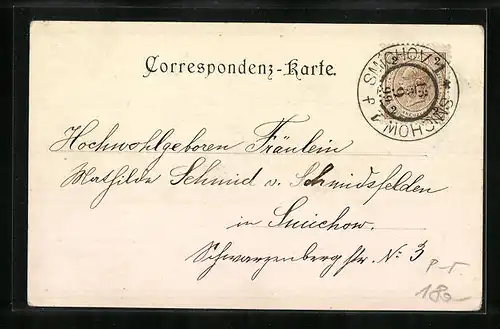 Correspondenz-Karte.
SMICHOV
SMICHOW
Hochwohlgeboren Fräulein
Mathilde Schmid v. Schmidsfelden
in Smichow.
Schwarzenbergstr. N: 3
P-T.
180